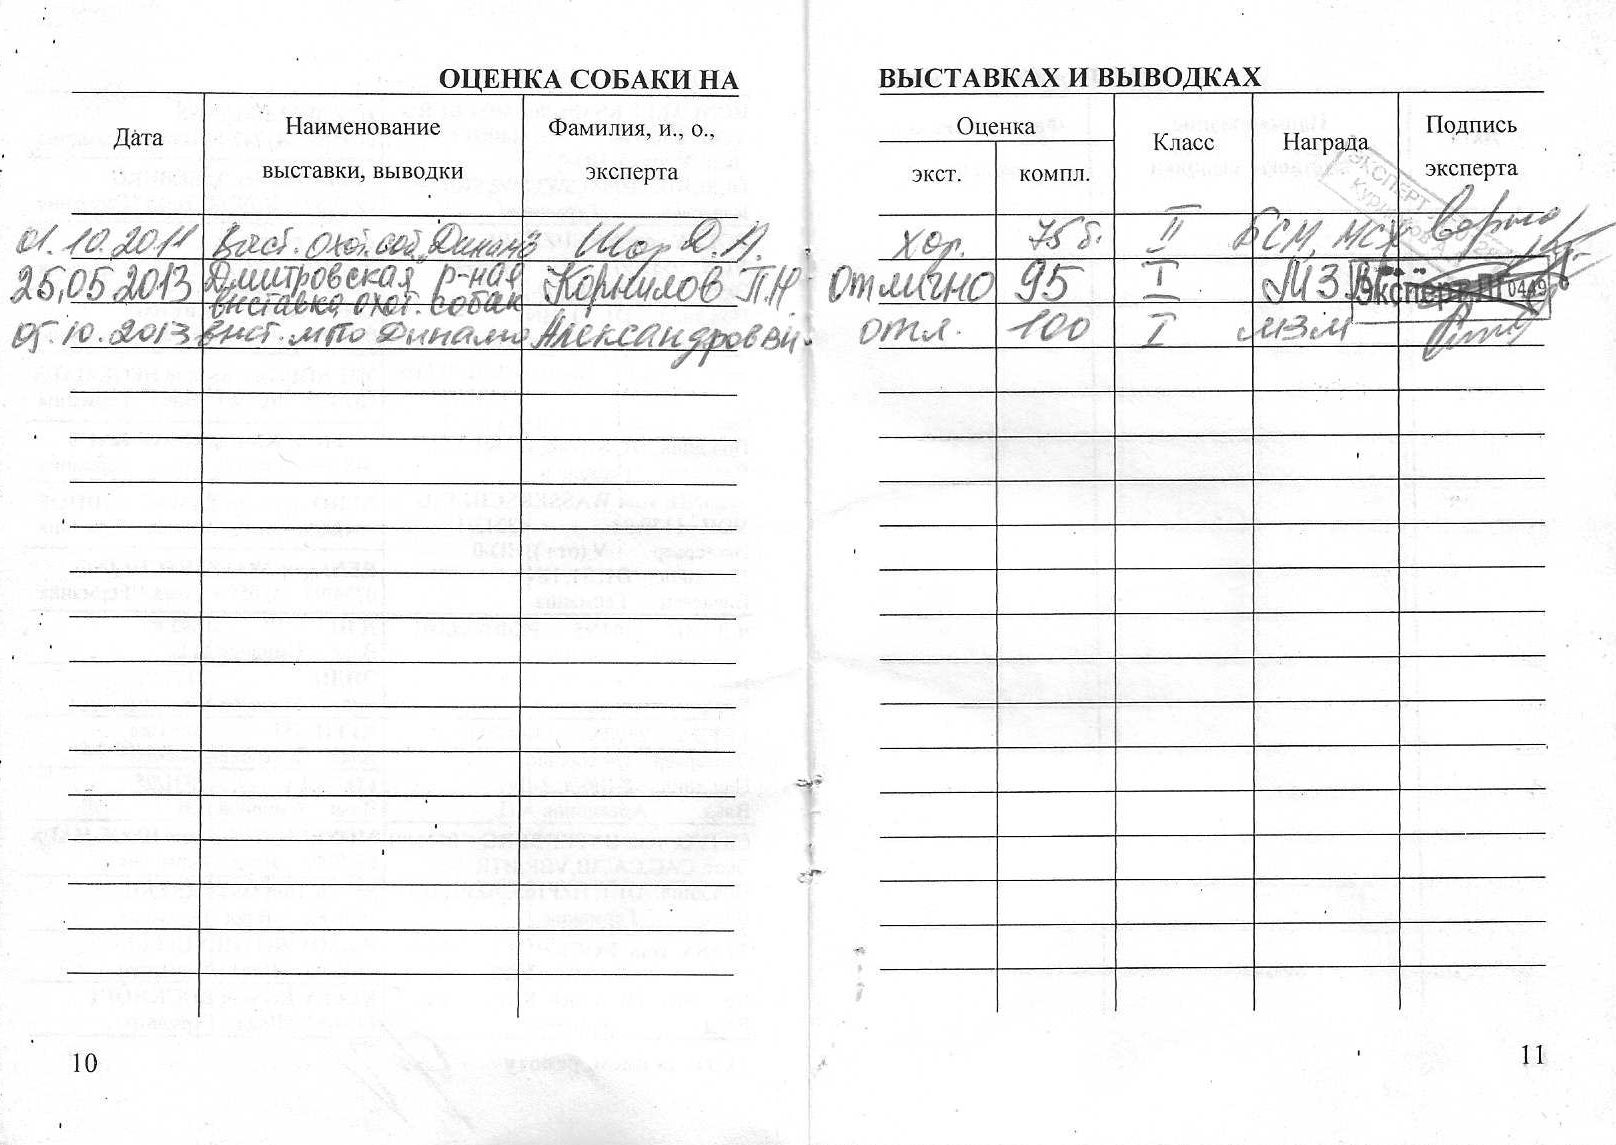 ОЦЕНКА СОБАКИ НА ВЫСТАВКАХ И ВЫВОДКАХ
Дата Наименование выставки, выводки Фамилия, и., о., эксперта Оценка экст. компл. Класс Награда Подпись эксперта
01.10.2011 Выст. охот. соб. "Динамо" Шор Д. хор. 75 б. II БСМ, МСХ
25.05.2013 Дмитровская р-ная выставка охот. собак Корнилов П.Н. отлично 95 I МЗ Эксперт 0449
05.10.2013 выст. МГО Динамо отл. 100 I МЗМ
ЭКСПЕРТ
10
11